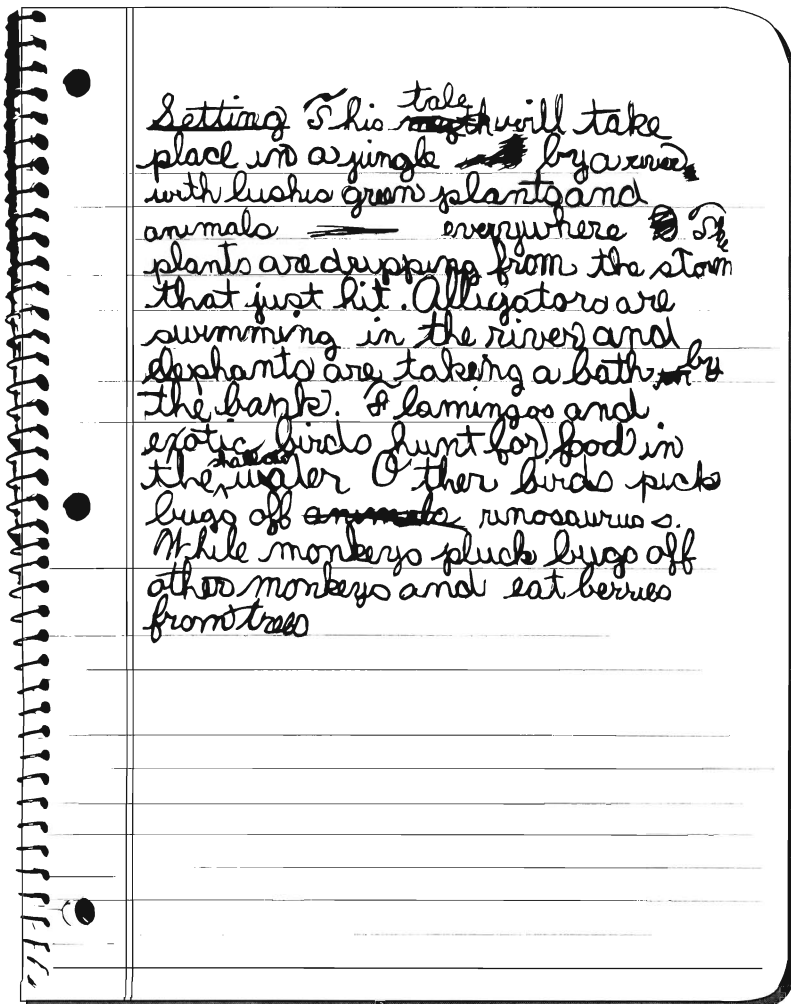 Setting This tale will take
place in a jungle by a river
with lushis green plants and
animals everywhere The
plants are dripping from the storm
that just hit. Alligators are
swimming in the river and
elephants are takeing a bath by
the bank. Flamingos and
exotic birds hunt for food in
the shallow water Other birds pick
bugs off rinosaurus s.
While monkeys pluck bugs off
other monkeys and eat berries
from trees